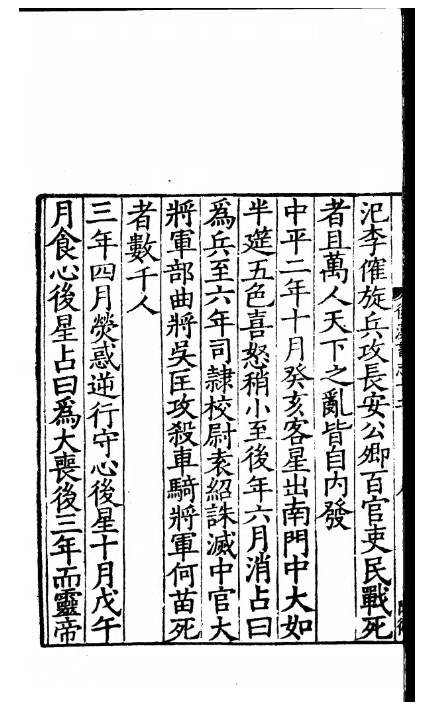 汜李傕旋兵攻長安公卿百官吏民戰死
者且萬人天下之亂皆自內發
中平二年十月癸亥客星出南門中大如
半筵五色喜怒稍小至後年六月消占曰
爲兵至六年司隸校尉袁紹誅滅中官大
將軍部曲將吳匡攻殺車騎將軍何苗死
者數千人
三年四月熒惑逆行守心後星十月戊午
月食心後星占曰爲大喪後三年而靈帝